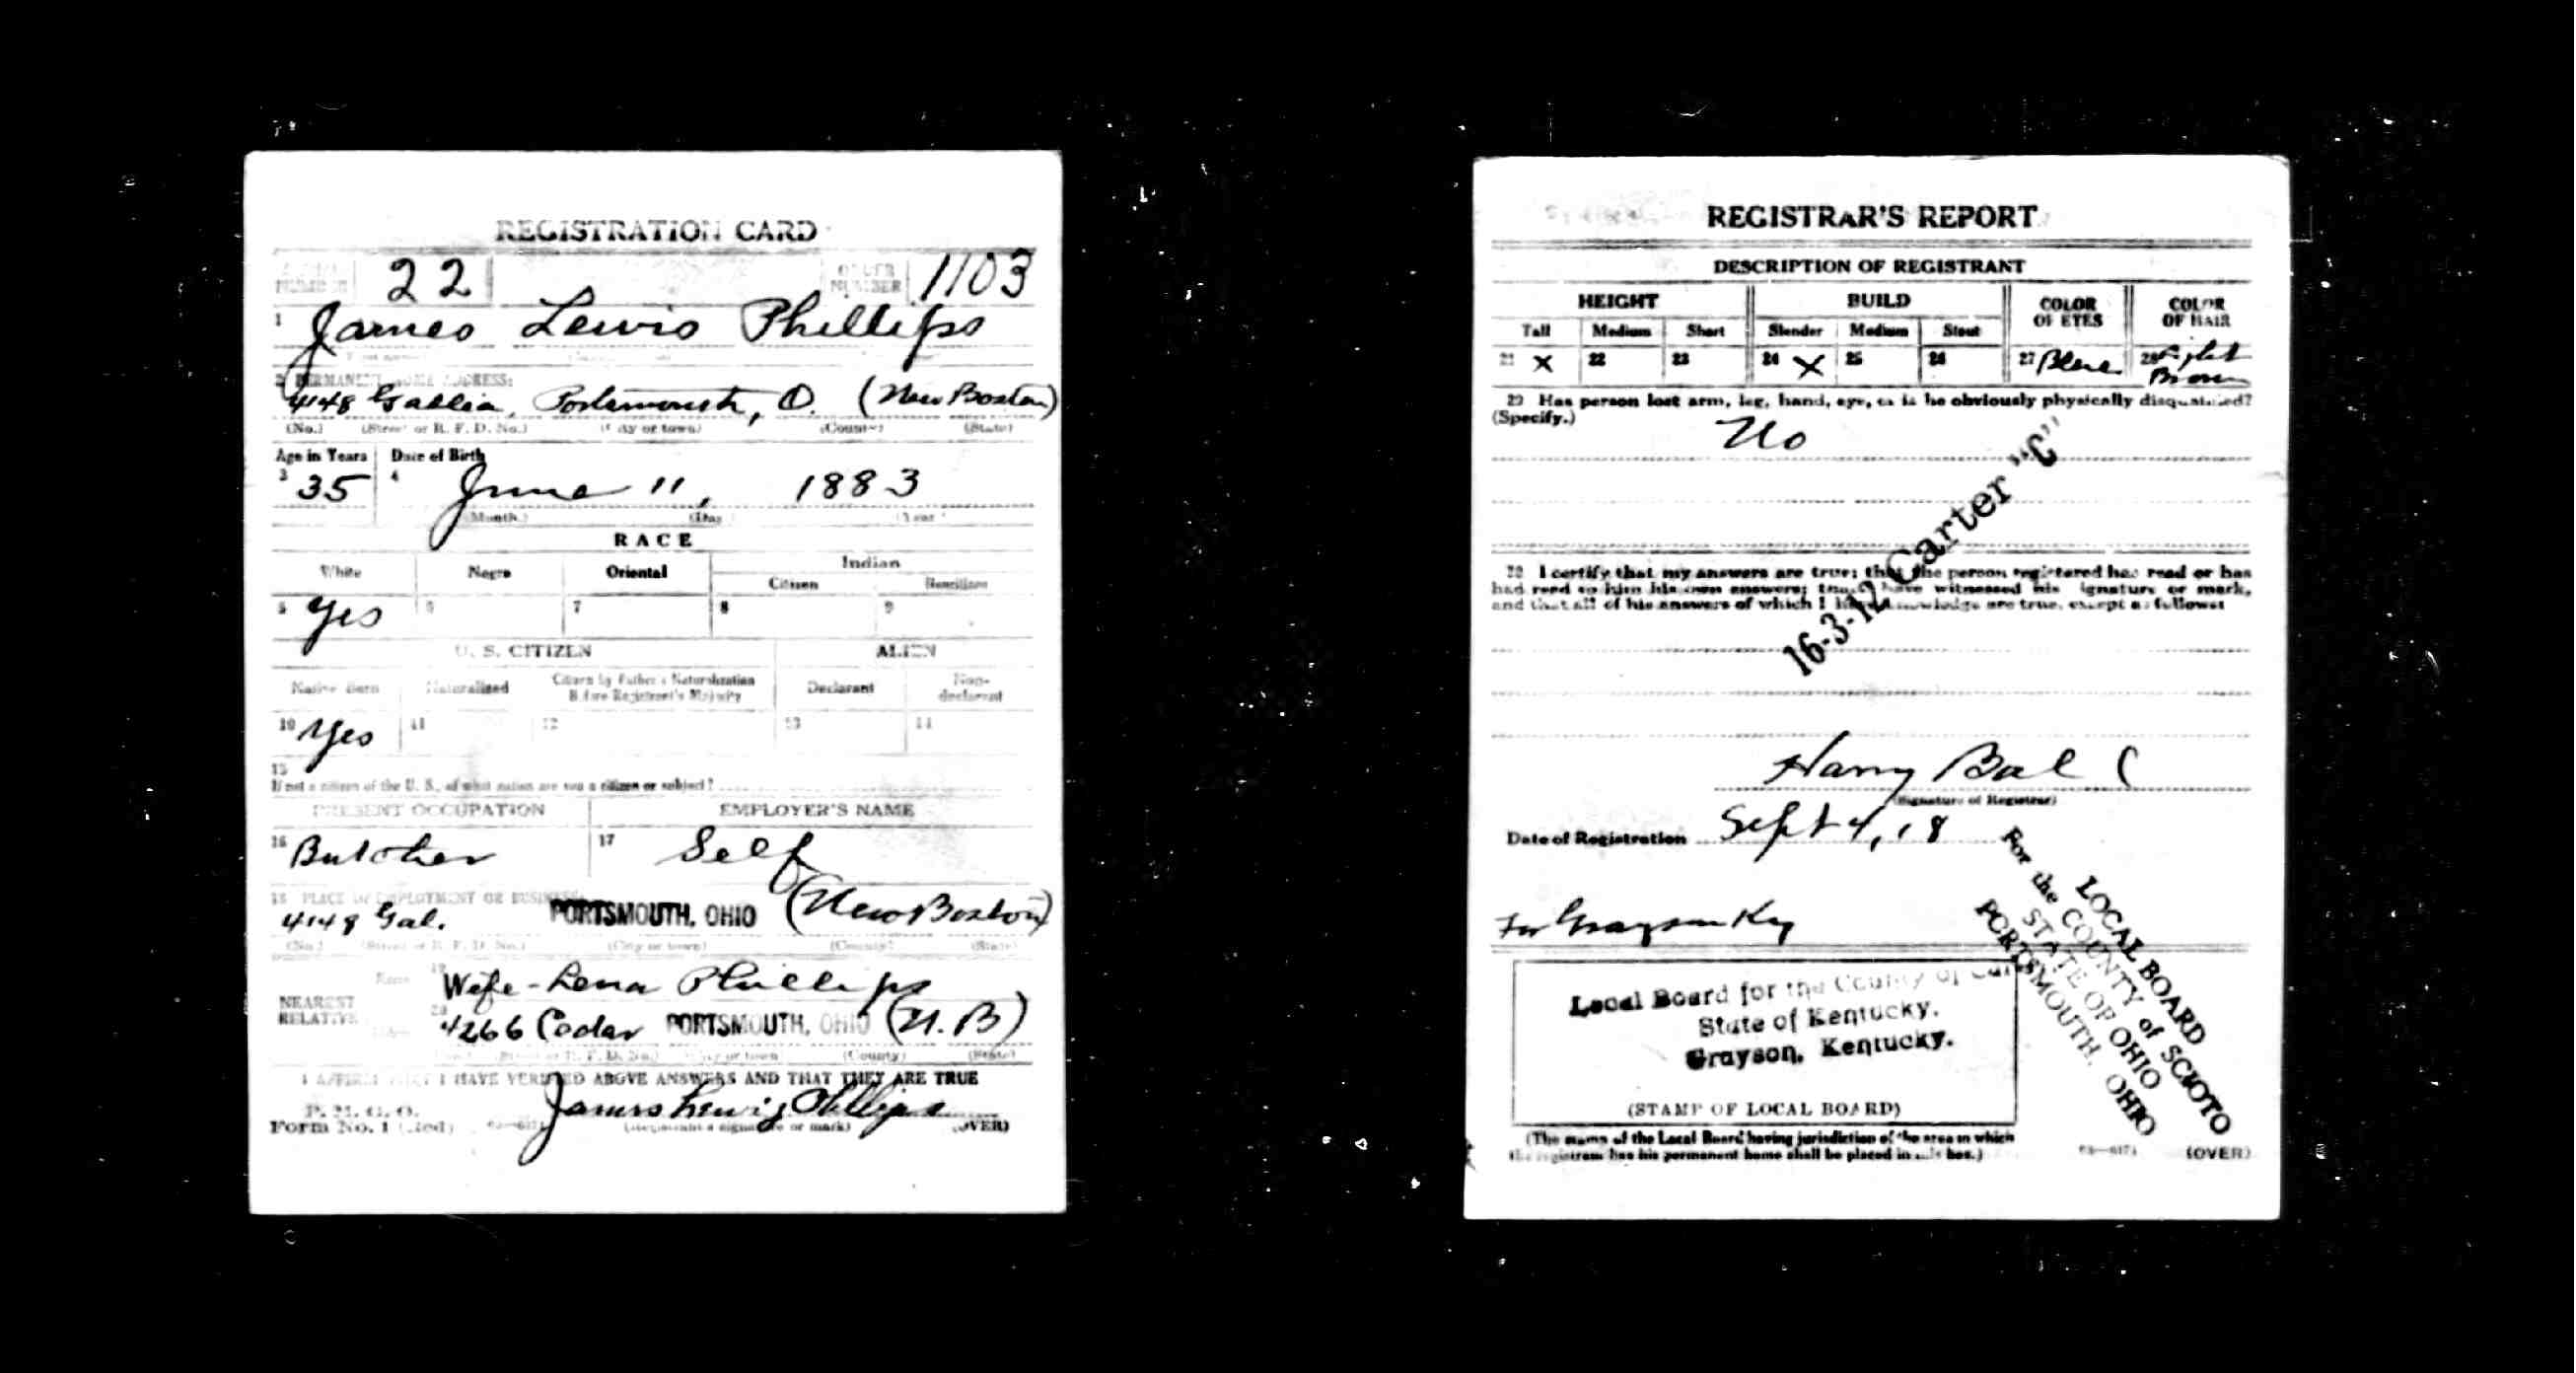 REGISTRATION CARD
22 ORDER NUMBER 1103
1 James Lewis Phillips
2 PERMANENT HOME ADDRESS:
4148 Gallia, Portsmouth, O. (New Boston)
(No.) (Street or R. F. D. No.) (City or town) (County) (State)
Age in Years Date of Birth
3 35 4 June 11, 1883
(Month.) (Day.) (Year.)
RACE
White Negro Oriental Indian
Citizen Noncitizen
5 Yes 6 7 8 9
U. S. CITIZEN ALIEN
Native Born Naturalized Citizen by Father's Naturalization Before Registrant's Majority Declarant Non-declarant
10 Yes 11 12 13 14
15
If not a citizen of the U. S., of what nation are you a citizen or subject?
PRESENT OCCUPATION EMPLOYER'S NAME
16 Butcher 17 Self
18 PLACE OF EMPLOYMENT OR BUSINESS:
4148 Gal. PORTSMOUTH, OHIO (New Boston)
(No.) (Street or R. F. D. No.) (City or town) (County) (State)
Name 19 Wife - Lena Phillips
NEAREST RELATIVE
20 4266 Cedar PORTSMOUTH, OHIO (N. B)
(Street or R. F. D. No.) (City or town) (County) (State)
I AFFIRM THAT I HAVE VERIFIED ABOVE ANSWERS AND THAT THEY ARE TRUE
P. M. G. O.
Form No. 1 (Red) James Lewis Phillips
(Registrant's signature or mark) (OVER)
REGISTRAR'S REPORT
DESCRIPTION OF REGISTRANT
HEIGHT BUILD COLOR OF EYES COLOR OF HAIR
Tall Medium Short Slender Medium Stout
21 X 22 23 24 X 25 26 27 Blue 28 Light Brown
29 Has person lost arm, leg, hand, eye, or is he obviously physically disqualified?
(Specify.) No
16-3-12 Carter "C"
30 I certify that my answers are true; that the person registered has read or has
had read to him his own answers; that I have witnessed his signature or mark,
and that all of his answers of which I have knowledge are true, except as follows:
Harry Bal
(Signature of Registrar)
Date of Registration Sept 4, 18
For Grayson Ky
Local Board for the County of Car
State of Kentucky.
Grayson, Kentucky.
(STAMP OF LOCAL BOARD)
LOCAL BOARD
For the COUNTY of SCIOTO
STATE OF OHIO
PORTSMOUTH, OHIO
(The stamp of the Local Board having jurisdiction of the area in which
the registrant has his permanent home shall be placed in this box.)
(OVER)